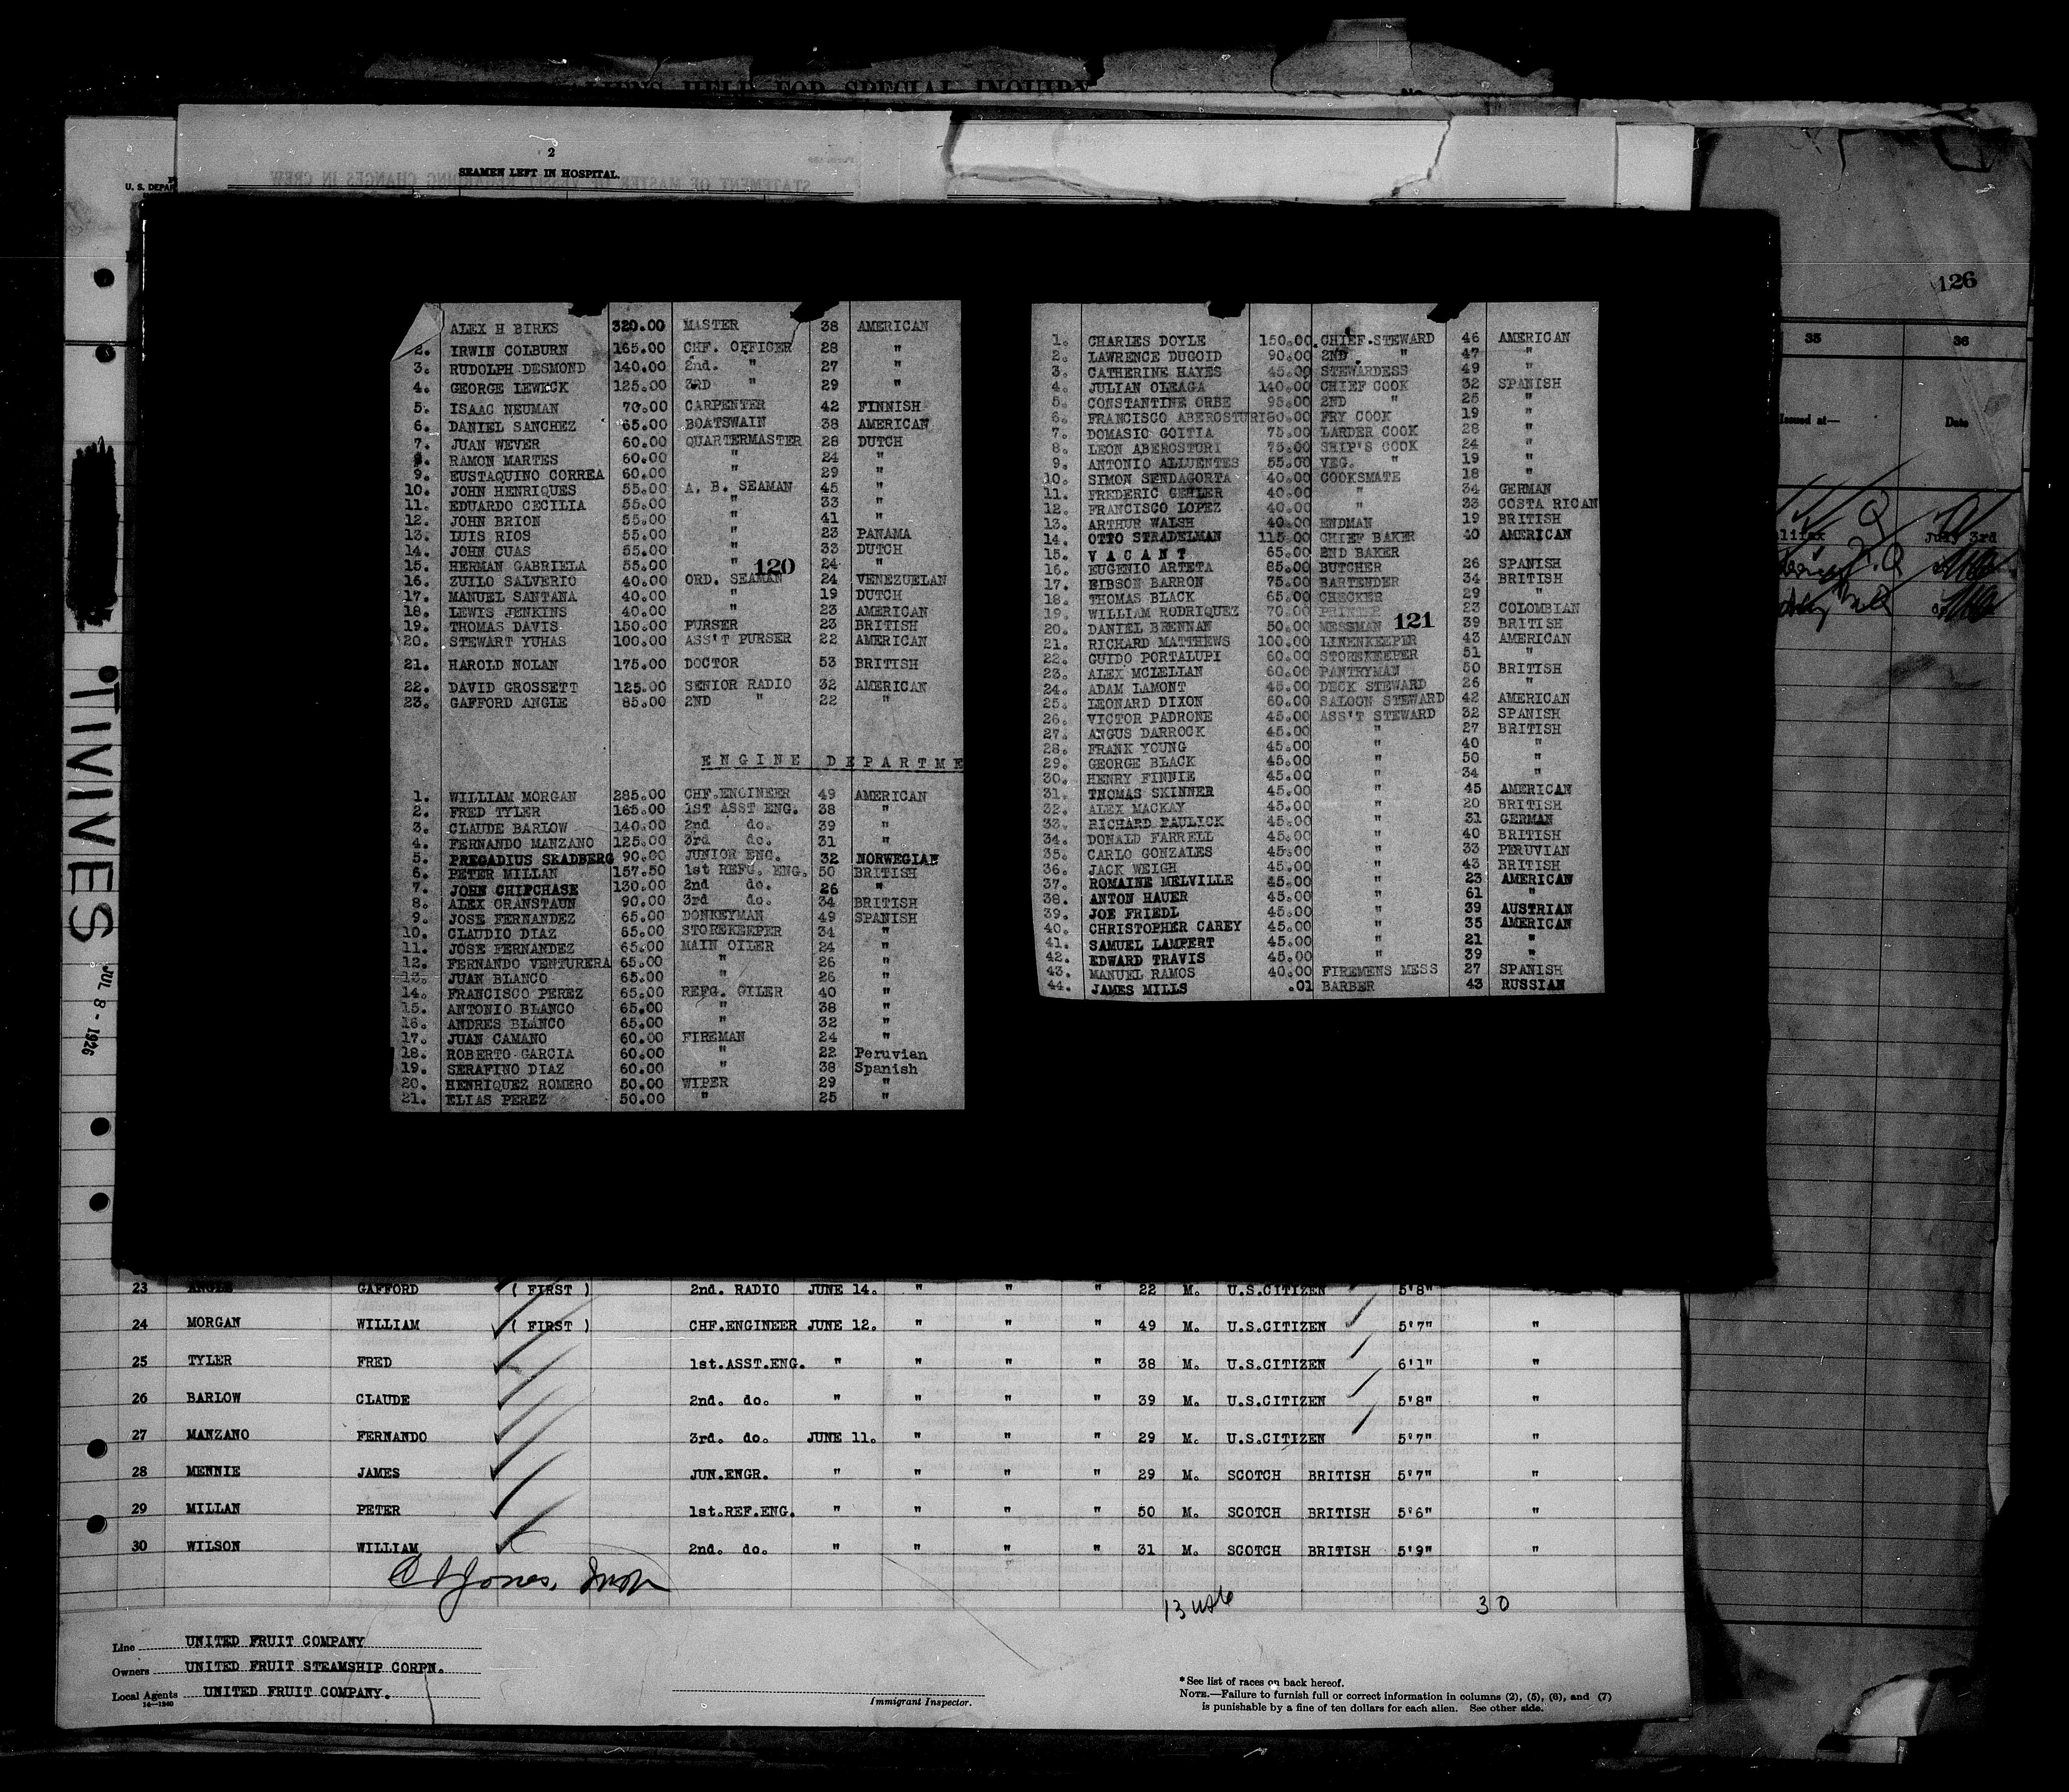 2
SEAMEN LEFT IN HOSPITAL.
STATEMENT OF MASTER OF VESSEL REGARDING CHANGES IN CREW
U. S. DEPAR
126
35 36
Issued at— Date
July 3rd
TIVIVES
JUL 8 - 1926
ALEX H BIRKS 320.00 MASTER 38 AMERICAN
2. IRWIN COLBURN 165.00 CHF. OFFICER 28 "
3. RUDOLPH DESMOND 140.00 2nd. " 27 "
4. GEORGE LEWECK 125.00 3RD " 29 "
5. ISAAC NEUMAN 70.00 CARPENTER 42 FINNISH
6. DANIEL SANCHEZ 65.00 BOATSWAIN 38 AMERICAN
7. JUAN WEVER 60.00 QUARTERMASTER 28 DUTCH
8. RAMON MARTES 60.00 " 24 "
9. EUSTAQUINO CORREA 60.00 " 29 "
10. JOHN HENRIQUES 55.00 A. B. SEAMAN 45 "
11. EDUARDO CECILIA 55.00 " 33 "
12. JOHN BRION 55.00 " 41 "
13. LUIS RIOS 55.00 " 23 PANAMA
14. JOHN CUAS 55.00 " 33 DUTCH
15. HERMAN GABRIELA 55.00 " 120 24 "
16. ZUILO SALVERIO 40.00 ORD. SEAMAN 24 VENEZUELAN
17. MANUEL SANTANA 40.00 " 19 DUTCH
18. LEWIS JENKINS 40.00 " 23 AMERICAN
19. THOMAS DAVIS 150.00 PURSER 23 BRITISH
20. STEWART YUHAS 100.00 ASS'T PURSER 22 AMERICAN
21. HAROLD NOLAN 175.00 DOCTOR 53 BRITISH
22. DAVID GROSSETT 125.00 SENIOR RADIO 32 AMERICAN
23. GAFFORD ANGLE 85.00 2ND " 22 "
ENGINE DEPARTME
1. WILLIAM MORGAN 285.00 CHF.ENGINEER 49 AMERICAN
2. FRED TYLER 165.00 1ST ASST ENG. 38 "
3. CLAUDE BARLOW 140.00 2nd do. 39 "
4. FERNANDO MANZANO 125.00 3rd do. 31 "
5. PREGADIUS SKADBERG 90.00 JUNIOR ENG. 32 NORWEGIAN
6. PETER MILLAN 157.50 1st REFG. ENG. 50 BRITISH
7. JOHN CHIPCHASE 130.00 2nd do. 26 "
8. ALEX CRANSTAUN 90.00 3rd do. 34 BRITISH
9. JOSE FERNANDEZ 65.00 DONKEYMAN 49 SPANISH
10. CLAUDIO DIAZ 65.00 STOREKEEPER 34 "
11. JOSE FERNANDEZ 65.00 MAIN OILER 24 "
12. FERNANDO VENTURERA 65.00 " 26 "
13. JUAN BLANCO 65.00 " 26 "
14. FRANCISCO PEREZ 65.00 REFG. OILER 40 "
15. ANTONIO BLANCO 65.00 " 38 "
16. ANDRES BLANCO 65.00 " 32 "
17. JUAN CAMANO 60.00 FIREMAN 24 "
18. ROBERTO GARCIA 60.00 " 22 Peruvian
19. SERAFINO DIAZ 60.00 " 38 Spanish
20. HENRIQUEZ ROMERO 50.00 WIPER 29 "
21. ELIAS PEREZ 50.00 " 25 "
1. CHARIES DOYLE 150.00 CHIEF.STEWARD 46 AMERICAN
2. LAWRENCE DUGOID 90.00 2ND " 47 "
3. CATHERINE HAYES 45.00 STEWARDESS 49 "
4. JULIAN OLEAGA 140.00 CHIEF COOK 32 SPANISH
5. CONSTANTINE ORBE 95.00 2ND " 25 "
6. FRANCISCO ABEROSTURI 80.00 FRY COOK 19 "
7. DOMASIC GOITIA 75.00 LARDER COOK 28 "
8. LEON ABEROSTURI 75.00 SHIP'S COOK 24 "
9. ANTONIO ALLUENTES 55.00 VEG. " 19 "
10. SIMON SENDAGORTA 40.00 COOKSMATE 18 "
11. FREDERIC GEHLER 40.00 " 34 GERMAN
12. FRANCISCO LOPEZ 40.00 " 33 COSTA RICAN
13. ARTHUR WALSH 40.00 ENDMAN 19 BRITISH
14. OTTO STRADELMAN 115.00 CHIEF BAKER 40 AMERICAN
15. V A C A N T 65.00 2ND BAKER
16. EUGENIO ARTETA 85.00 BUTCHER 26 SPANISH
17. EIBSON BARRON 75.00 BARTENDER 34 BRITISH
18. THOMAS BLACK 65.00 CHECKER 29 "
19. WILLIAM RODRIQUEZ 70.00 PRINTER 23 COLOMBIAN
20. DANIEL BRENNAN 50.00 MESSMAN 121 39 BRITISH
21. RICHARD MATTHEWS 100.00 LINENKEEPER 43 AMERICAN
22. GUIDO PORTALUPI 60.00 STOREKEEPER 51 "
23. ALEX MCLELLAN 60.00 PANTRYMAN 50 BRITISH
24. ADAM LAMONT 45.00 DECK STEWARD 26 "
25. LEONARD DIXON 60.00 SALOON STEWARD 42 AMERICAN
26. VICTOR PADRONE 45.00 ASS'T STEWARD 32 SPANISH
27. ANGUS DARROCK 45.00 " 27 BRITISH
28. FRANK YOUNG 45.00 " 40 "
29. GEORGE BLACK 45.00 " 50 "
30. HENRY FINNIE 45.00 " 34 "
31. THOMAS SKINNER 45.00 " 45 AMERICAN
32. ALEX MACKAY 45.00 " 20 BRITISH
33. RICHARD PAULICK 45.00 " 31 GERMAN
34. DONALD FARRELL 45.00 " 40 BRITISH
35. CARLO GONZALES 45.00 " 33 PERUVIAN
36. JACK WEIGH 45.00 " 43 BRITISH
37. ROMAINE MELVILLE 45.00 " 23 AMERICAN
38. ANTON HAUER 45.00 " 61 "
39. JOE FRIEDL 45.00 " 39 AUSTRIAN
40. CHRISTOPHER CAREY 45.00 " 35 AMERICAN
41. SAMUEL LAMPERT 45.00 " 21 "
42. EDWARD TRAVIS 45.00 " 39 "
43. MANUEL RAMOS 40.00 FIREMENS MESS 27 SPANISH
44. JAMES MILLS .01 BARBER 43 RUSSIAN
23 ANGLE GAFFORD ( FIRST ) 2nd. RADIO JUNE 14. " " " 22 M. U.S.CITIZEN 5'8"
24 MORGAN WILLIAM ( FIRST ) CHF.ENGINEER JUNE 12. " " " 49 M. U.S.CITIZEN 5'7" "
25 TYLER FRED 1st.ASST.ENG. " " " 38 M. U.S.CITIZEN 6'1" "
26 BARLOW CLAUDE 2nd. do. " " " " 39 M. U.S.CITIZEN 5'8" "
27 MANZANO FERNANDO 3rd. do. JUNE 11. " " " 29 M. U.S.CITIZEN 5'7" "
28 MENNIE JAMES JUN.ENGR. " " " " 29 M. SCOTCH BRITISH 5'7" "
29 MILLAN PETER 1st.REF.ENG. " " " " 50 M. SCOTCH BRITISH 5'6" "
30 WILSON WILLIAM 2nd. do. " " " " 31 M. SCOTCH BRITISH 5'9" "
Jones,
13 30
Line UNITED FRUIT COMPANY
Owners UNITED FRUIT STEAMSHIP CORPN.
Local Agents UNITED FRUIT COMPANY.
14—1240
Immigrant Inspector.
* See list of races on back hereof.
NOTE.—Failure to furnish full or correct information in columns (2), (5), (6), and (7)
is punishable by a fine of ten dollars for each alien. See other side.